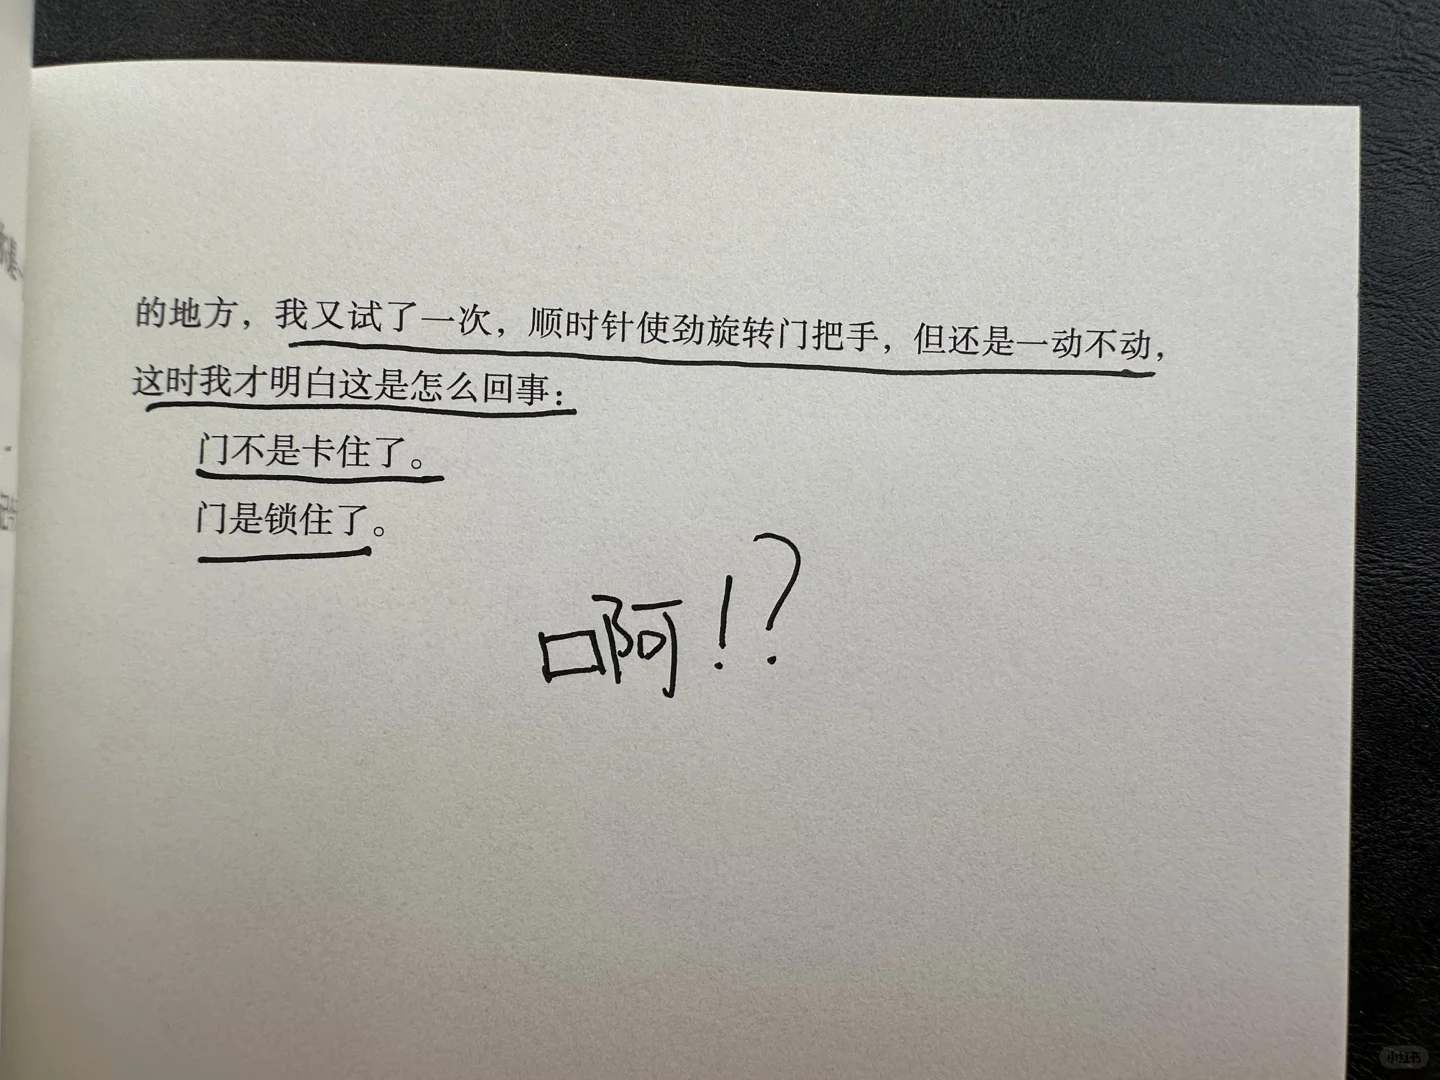 的地方，我又试了一次，顺时针使劲旋转门把手，但还是一动不动，
这时我才明白这是怎么回事：
门不是卡住了。
门是锁住了。
啊！？
小红书